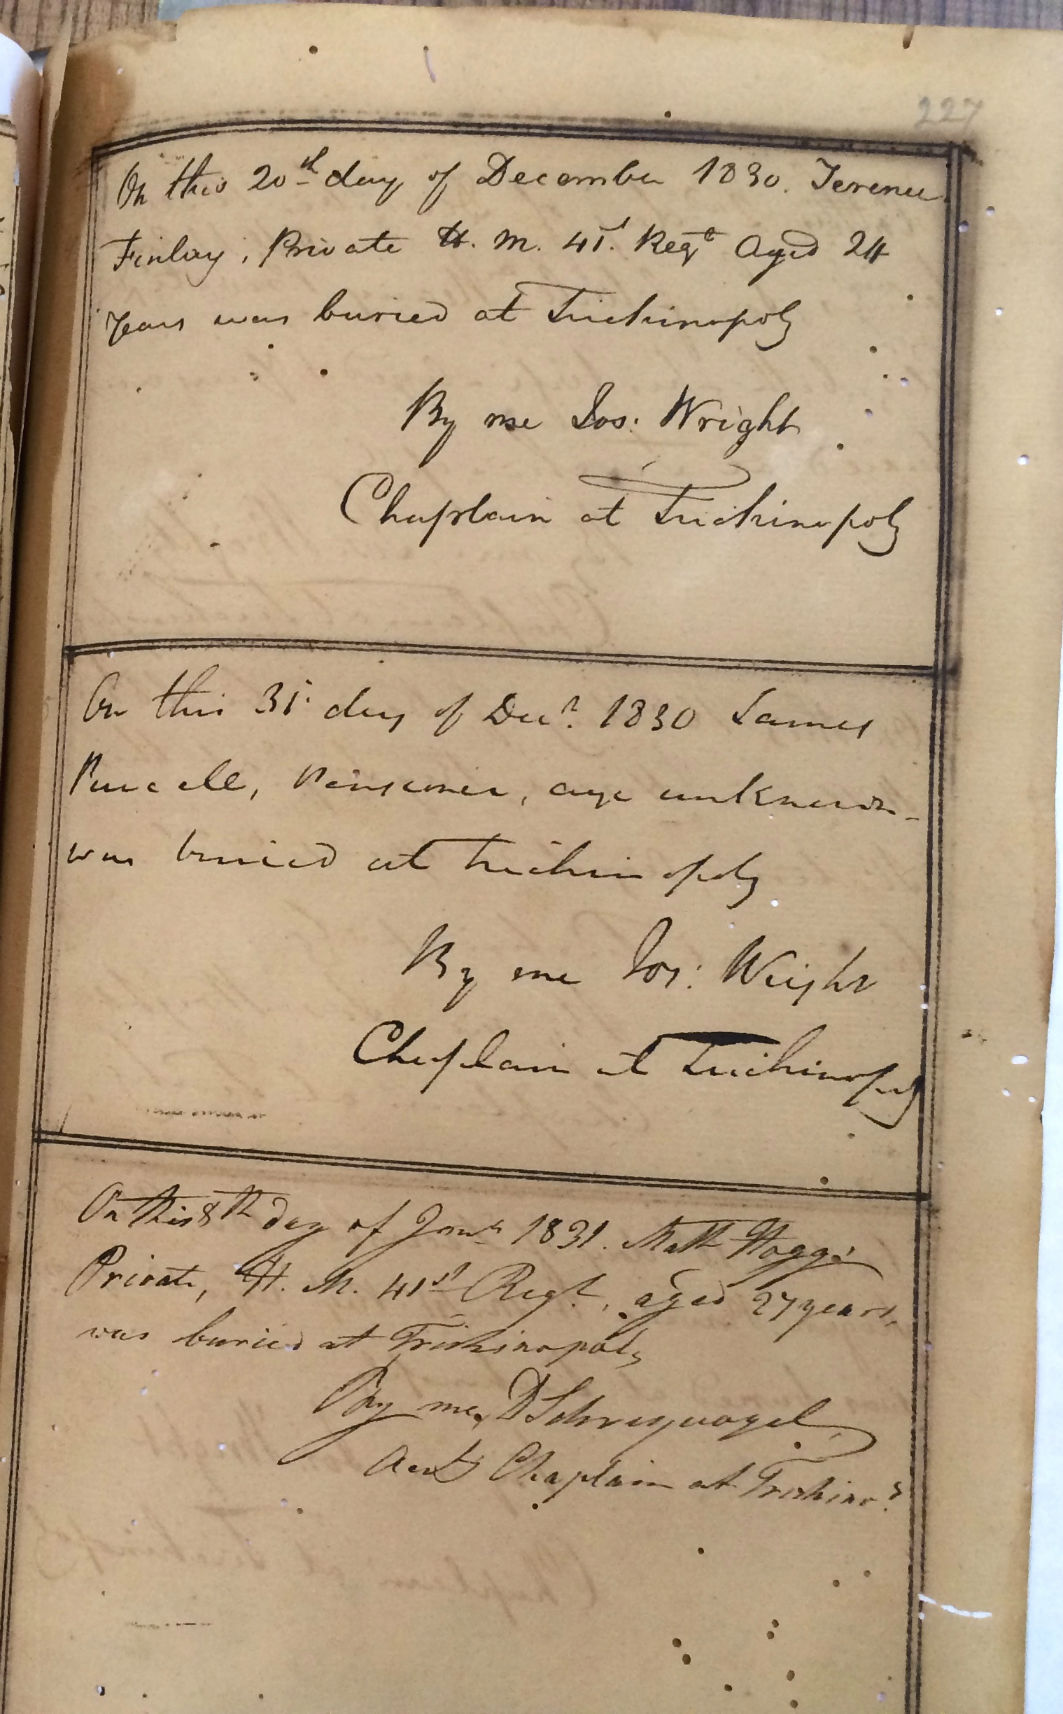 227
On this 20th day of December 1830. Terence
Finlay, Private H. M. 41st. Regt Aged 24
Years was buried at Trichinopoly
By me Jos: Wright
Chaplain at Trichinopoly
On this 31st day of Decr. 1830 James
Purcell, Pensioner, age unknown
was buried at Trichinopoly
By me Jos: Wright
Chaplain at Trichinopoly
On this 8th day of Jany 1831. Matt Hogg
Private, H. M. 41st Regt., aged 27 years,
was buried at Trichinopoly
By me, D Schreyvogel
Chaplain at